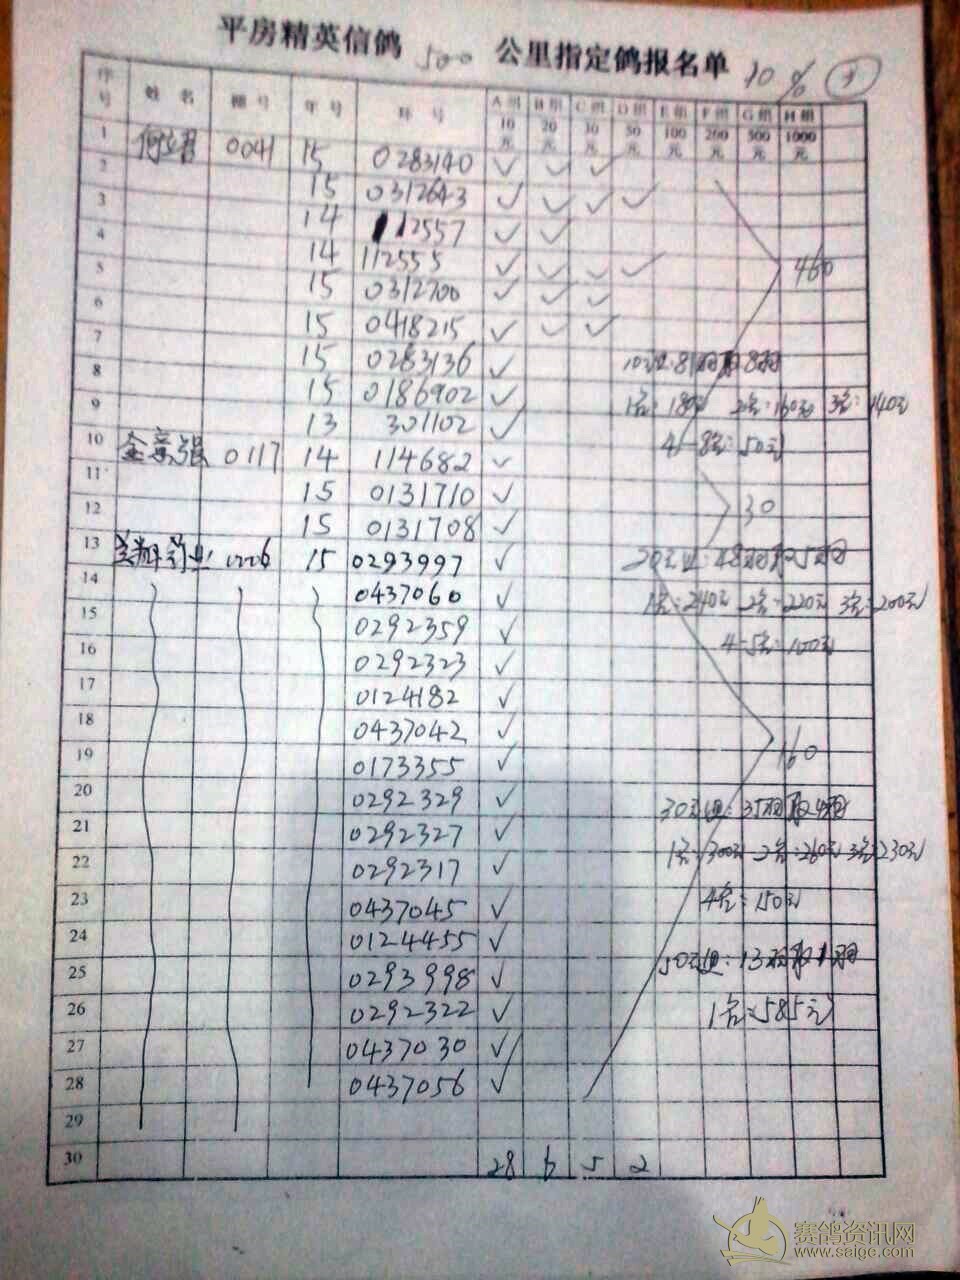 平房精英信鸽 500 公里指定鸽报名单 10%
序号 姓名 棚号 年号 环号 A组10元 B组20元 C组30元 D组50元 E组100元 F组200元 G组500元 H组1000元
1 0041 15 0283140 ✓ ✓ ✓
2 15 0312643 ✓ ✓ ✓ ✓
3 14 112557 ✓ ✓
4 14 112555 ✓ ✓ ✓ ✓ 460
5 15 0312700 ✓ ✓ ✓
6 15 0418215 ✓ ✓ ✓
7 15 0283136 ✓ 10元组:81羽取8羽
8 15 0186902 ✓ 1名:180元 2名:160元 3名:140元
9 13 301102 ✓ 4-8名:50元
10 0117 14 114682 ✓
11 15 0131710 ✓ 30
12 15 0131708 ✓
13 15 0293997 ✓ 20元组:48羽取5羽
14 0437060 ✓ 1名:240元 2名:220元 3名:200元
15 0292359 ✓ 4-5名:100元
16 0292323 ✓
17 0124182 ✓
18 0437042 ✓ 160
19 0173355 ✓
20 0292329 ✓ 30元组:35羽取4羽
21 0292327 ✓ 1名:300元 2名:260元 3名:230元
22 0292317 ✓
23 0437045 ✓ 4名:150元
24 0124455 ✓
25 0293998 ✓ 50元组:13羽取1羽
26 0292322 ✓ 1名:585元
27 0437030 ✓
28 0437056 ✓
29
30 28 6 5 2
赛鸽资讯网
www.saigc.com